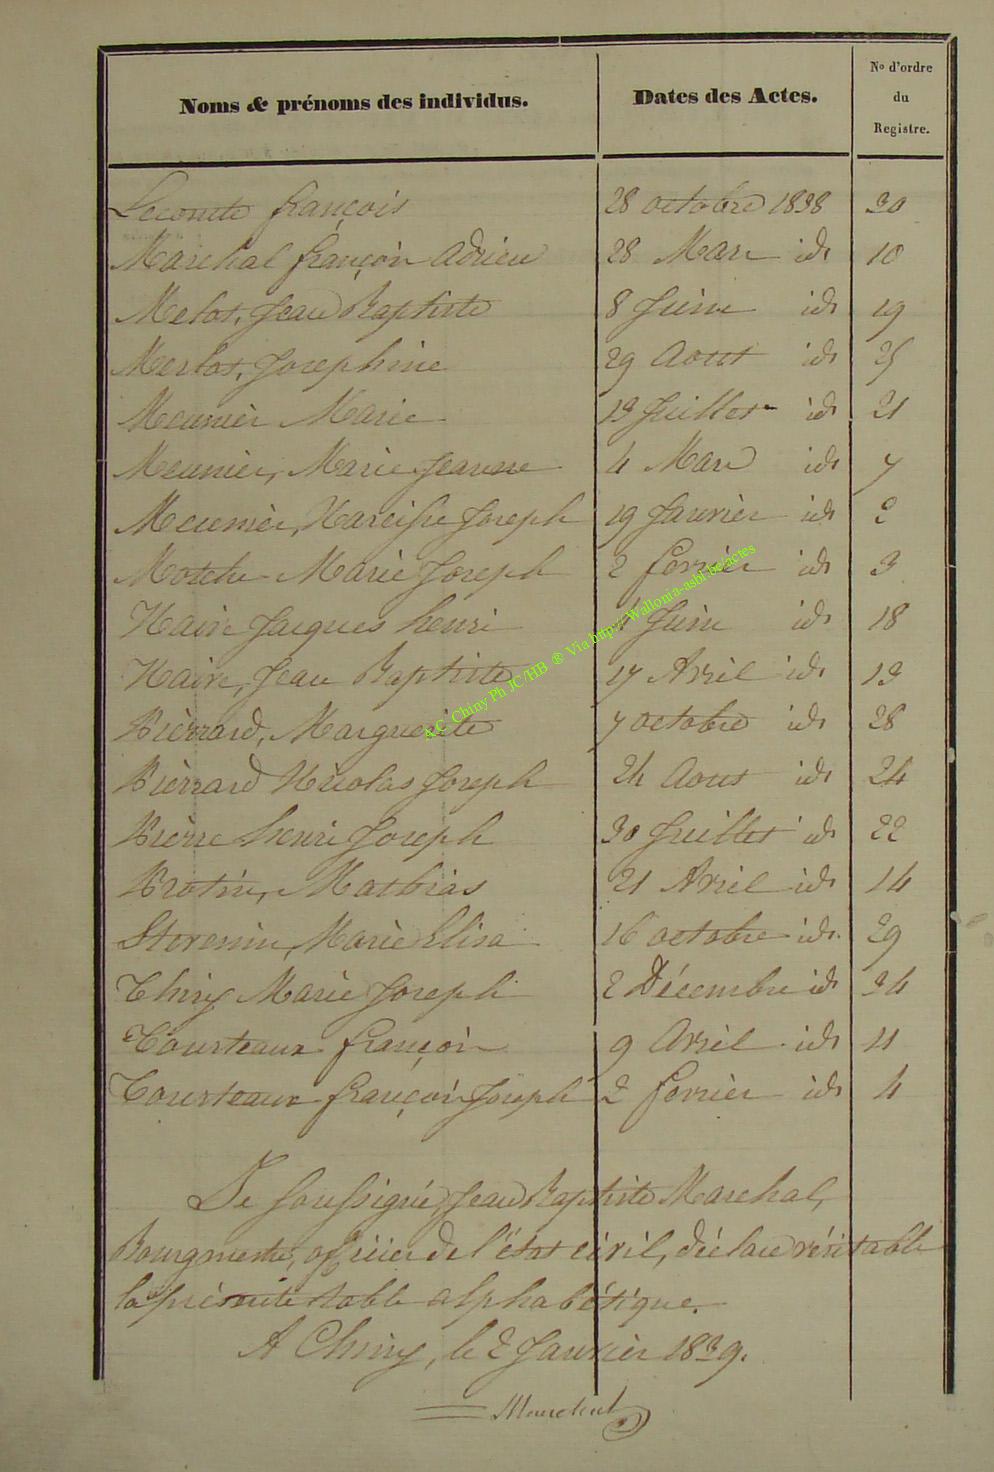 Noms & prénoms des individus. Dates des Actes. No d'ordre du Registre.
Lecomte françois 28 octobre 1838 30
Marchal françois Adrien 28 Mars id 10
Melot, Jean Baptiste 8 Juin id 19
Merlot, Josephine 29 Aout id 25
Meunier Marie 13 Juillet id 21
Meunier, Marie Jeanne 4 Mars id 7
Meunier, Narcisse Joseph 19 Janvier id 2
Marie Joseph 2 fevrier id 3
Naire Jacques henri Juin id 18
Naire, Jean Baptiste 17 Avril id 13
Pièrrard, Marguerite 7 octobre id 28
Pièrrard Nicolas Joseph 24 Aout id 24
Pièrre henri Joseph 30 Juillet id 22
Protin, Mathias 21 Avril id 14
Marie Elisa 16 octobre id 29
Thiry Marie Joseph 2 Décembre id 34
Tourteaux françois 9 Avril id 11
Tourteaux françois Joseph 2 fevrier id 4
Je soussigné, Jean Baptiste Marchal,
Bourgmestre, officier de l'état civil, déclare véritable
la présente table alphabétique.
A Chiny, le 2 Janvier 1839.
Marchal
AC Chiny Ph JC/HB ® Via http://Wallonia-asbl.be/actes